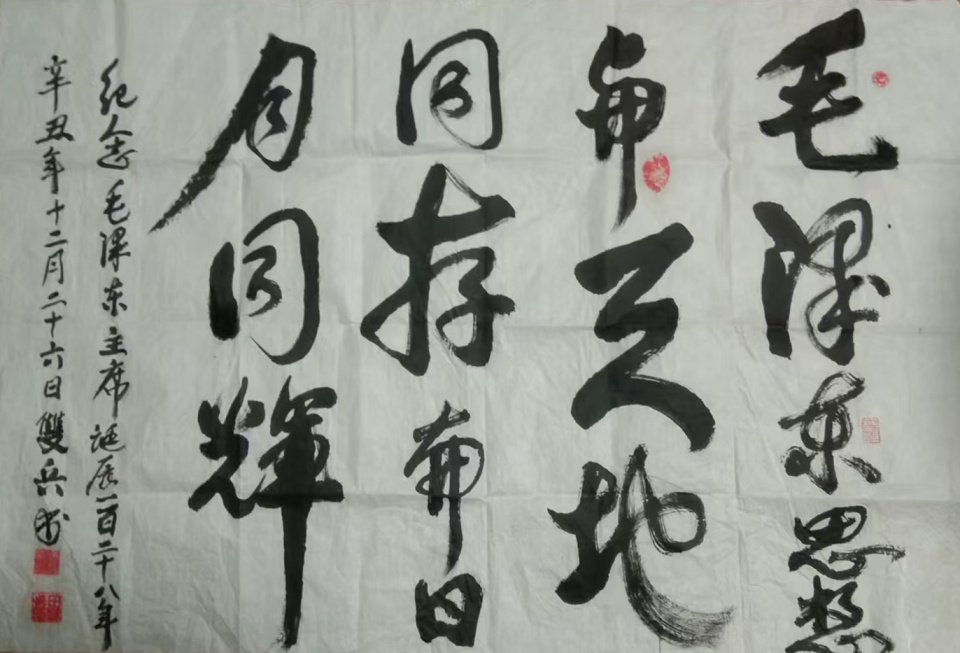 毛泽东思想
与天地
同存与日
月同辉
纪念毛泽东主席诞辰一百二十八年
辛丑年十二月二十六日雙兵书